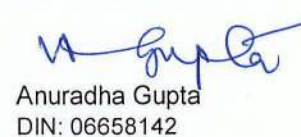 Anuradha Gupta
DIN: 06658142